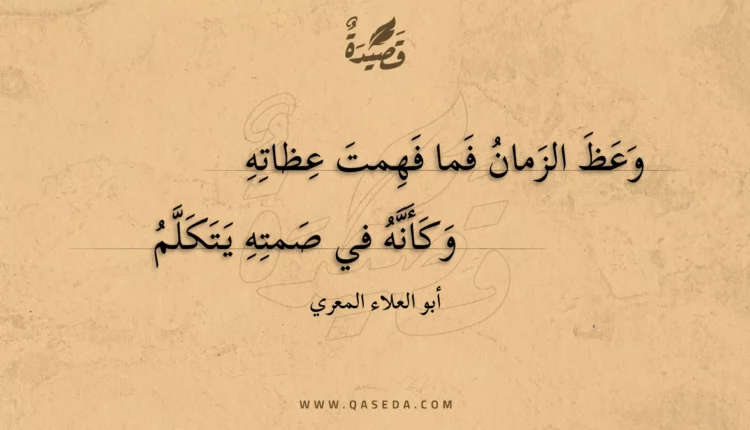 قَصِيدَةٌ
وَعَظَ الزَمانُ فَما فَهِمتَ عِظاتِهِ
وَكَأَنَّهُ في صَمتِهِ يَتَكَلَّمُ
أبو العلاء المعري
WWW.QASEDA.COM